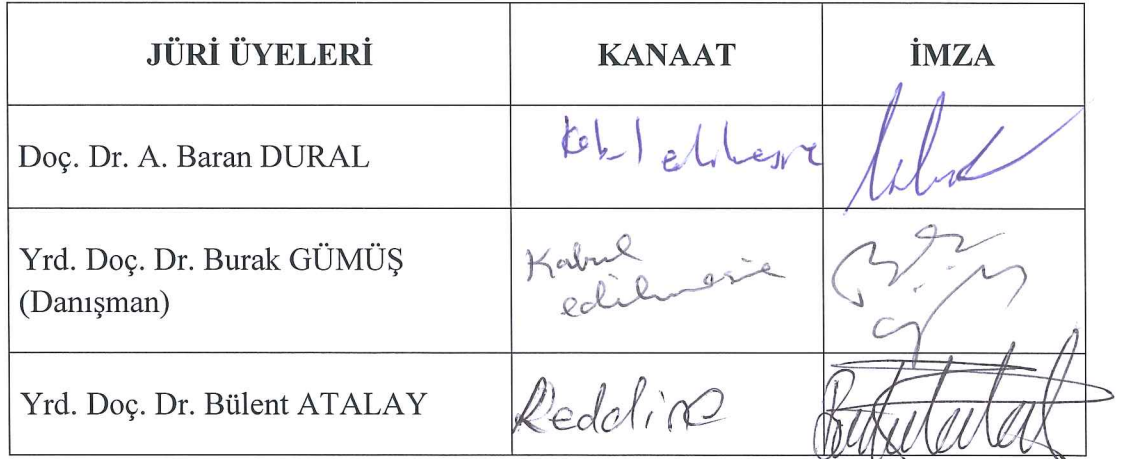 JÜRİ ÜYELERİ KANAAT İMZA
Doç. Dr. A. Baran DURAL Kabul edilmesine
Yrd. Doç. Dr. Burak GÜMÜŞ Kabul
(Danışman) edilmesine
Yrd. Doç. Dr. Bülent ATALAY Reddine